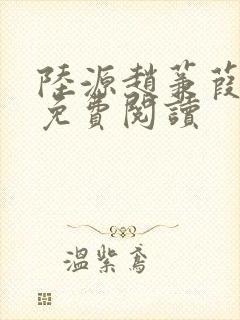 陸源趙蒹葭
免費閱讀
溫紫鳶